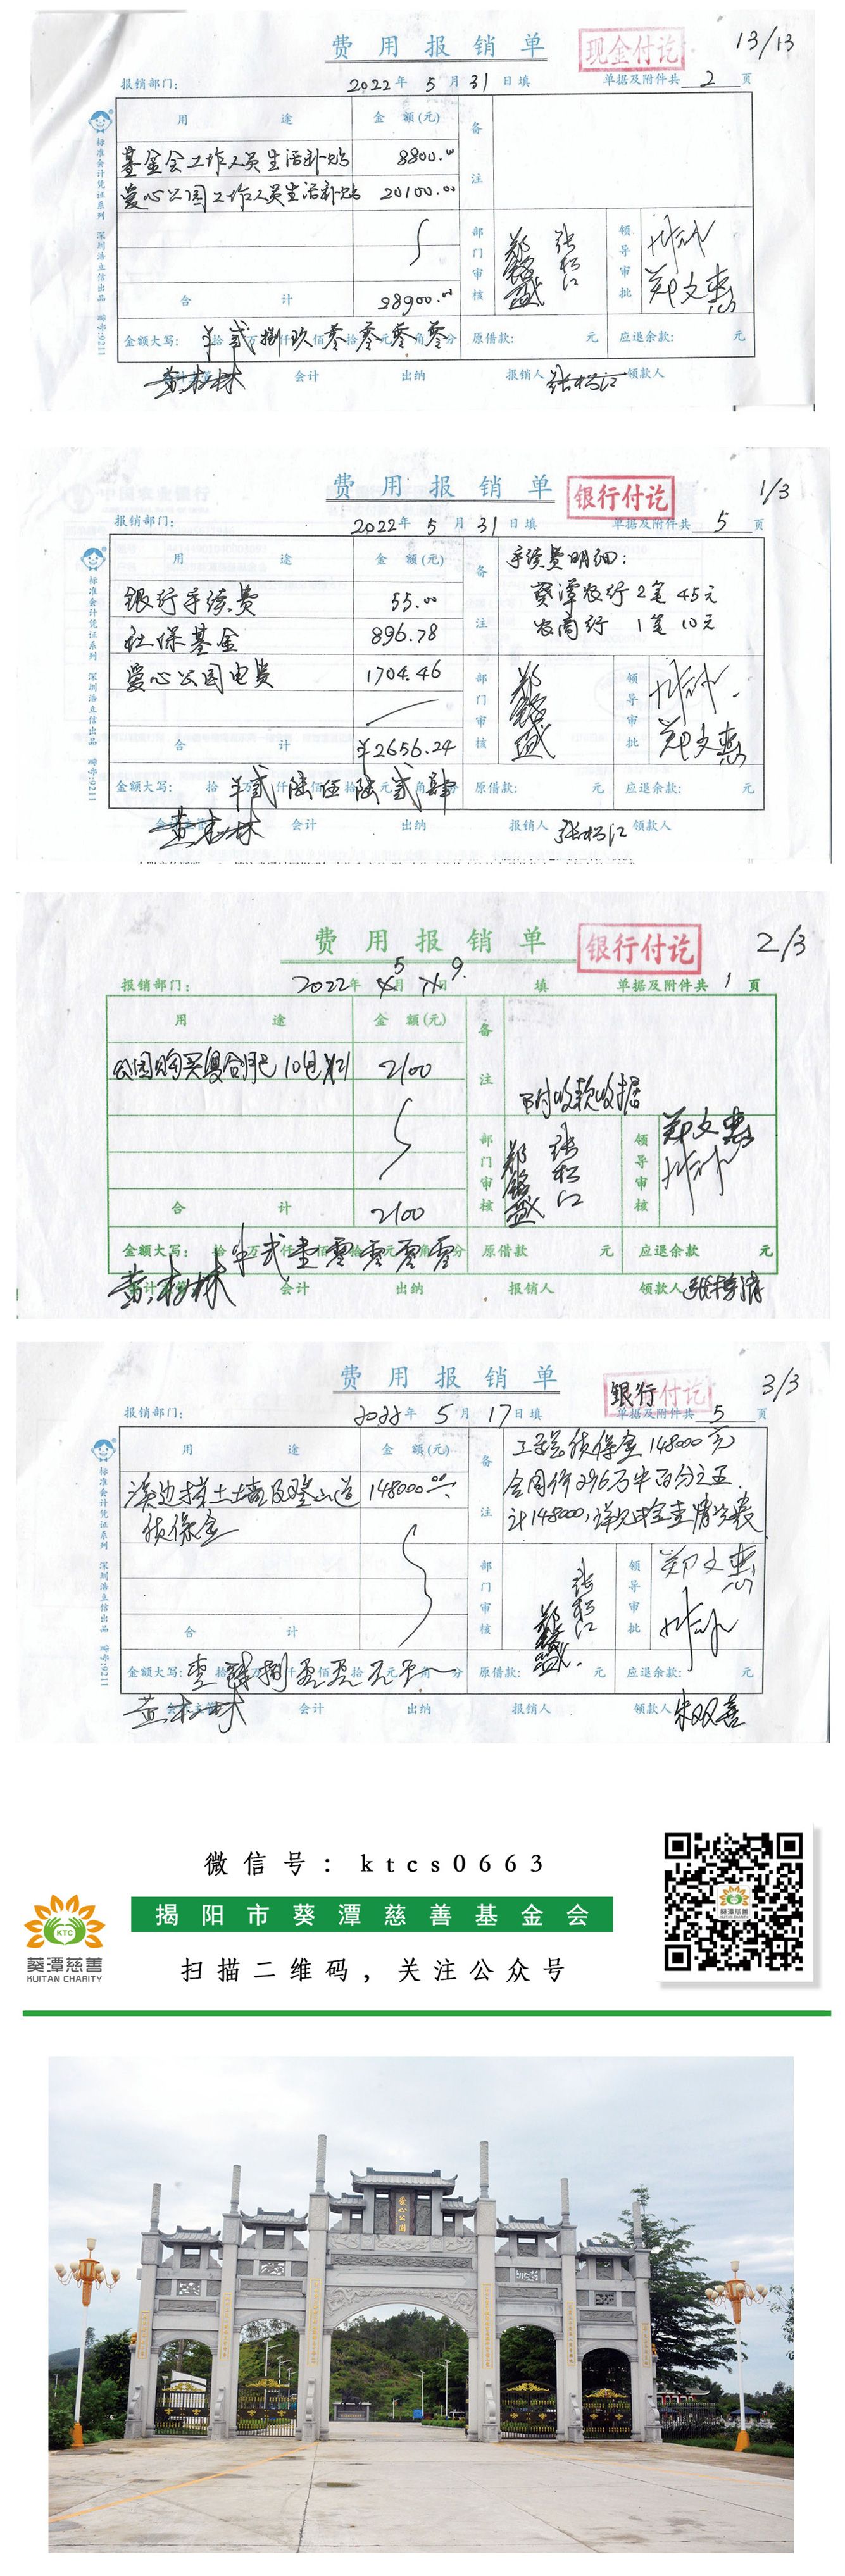 费用报销单
现金付讫
13/13
报销部门:
2022年5月31日填
单据及附件共2页
用途
金额(元)
备注
基金会工作人员生活补贴 8800.00
爱心公园工作人员生活补贴 20100.00
部门审核
张松江
领导审批
郑文惠
合计 28900.00
金额大写: 拾万仟佰拾元角分
原借款: 元
应退余款: 元
会计
出纳
报销人 张松江
领款人
标准会计凭证系列 深圳浩立信出品 货号:9211
费用报销单
银行付讫
1/3
报销部门:
2022年5月31日填
单据及附件共5页
用途
金额(元)
备注
手续费明细:
葵潭农行2笔 45元
农商行 1笔 10元
银行手续费 55.00
社保基金 896.78
爱心公园电费 1704.46
部门审核
领导审批
郑文惠
合计 ¥2656.24
金额大写: 拾万仟佰拾元角分
原借款: 元
应退余款: 元
会计
出纳
报销人 张松江
领款人
标准会计凭证系列 深圳浩立信出品 货号:9211
费用报销单
银行付讫
2/3
报销部门:
2022年5月9日填
单据及附件共1页
用途
金额(元)
备注
公园购买复合肥10包 2100
附收款收据
部门审核
张松江
领导审核
郑文惠
合计 2100
金额大写: 拾万仟佰拾元角分
原借款 元
应退余款 元
会计
出纳
报销人
领款人
费用报销单
银行付讫
3/3
报销部门:
2022年5月17日填
单据及附件共5页
用途
金额(元)
备注
工程总质保金148000元
合同价296万半百分之五
计148000,详见资金查情况表
溪边挡土墙及登山道 148000.00
质保金
部门审核
张松江
领导审批
郑文惠
合计
金额大写: 拾万仟佰拾元角分
原借款: 元
应退余款: 元
会计
出纳
报销人
领款人
标准会计凭证系列 深圳浩立信出品 货号:9211
微信号:ktcs0663
揭阳市葵潭慈善基金会
扫描二维码,关注公众号
KTC
葵潭慈善
KUITAN CHARITY
葵潭慈善
爱心公园